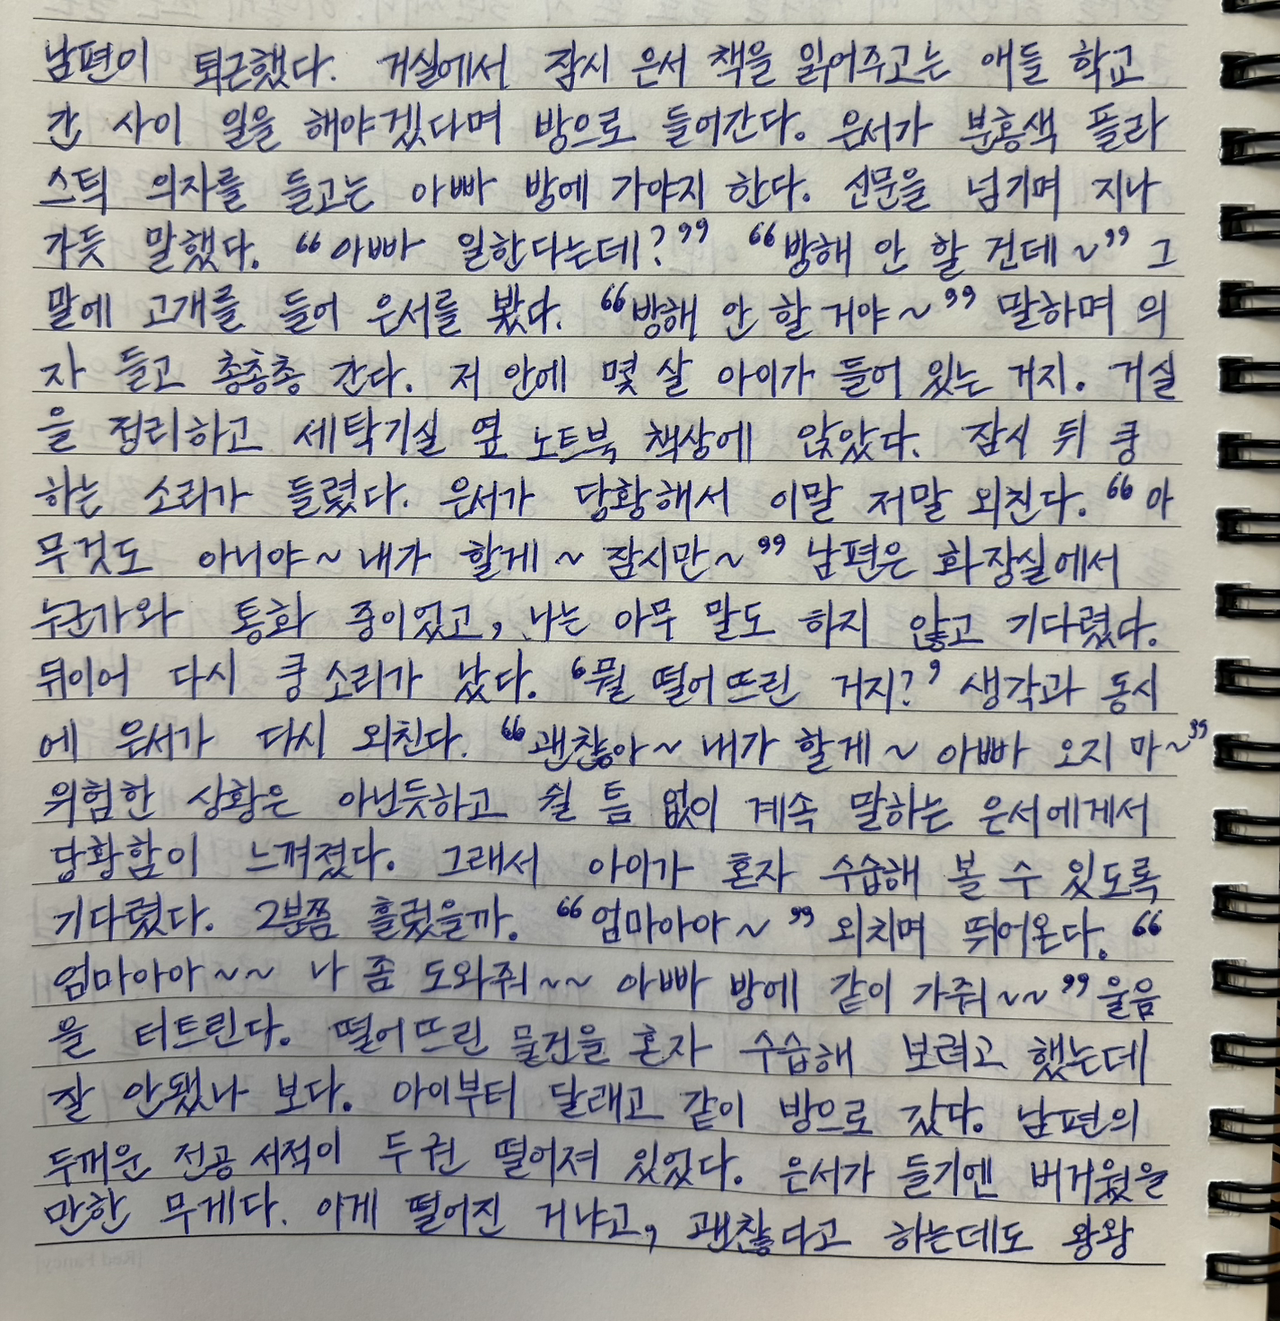 남편이 퇴근했다. 거실에서 잠시 은서 책을 읽어주고는 애들 학교
간 사이 일을 해야겠다며 방으로 들어간다. 은서가 분홍색 플라
스틱 의자를 들고는 아빠 방에 가야지 한다. 신문을 넘기며 지나
가듯 말했다. “아빠 일한다는데?” “방해 안 할 건데~” 그
말에 고개를 들어 은서를 봤다. “방해 안 할 거야~” 말하며 의
자 들고 총총총 간다. 저 안에 몇 살 아이가 들어 있는 거지. 거실
을 정리하고 세탁기실 옆 노트북 책상에 앉았다. 잠시 뒤 쿵
하는 소리가 들렸다. 은서가 당황해서 이말 저말 외친다. “아
무것도 아니야~ 내가 할게~ 잠시만~” 남편은 화장실에서
누군가와 통화 중이었고, 나는 아무 말도 하지 않고 기다렸다.
뒤이어 다시 쿵 소리가 났다. ‘뭘 떨어뜨린 거지?’ 생각과 동시
에 은서가 다시 외친다. “괜찮아~ 내가 할게~ 아빠 오지 마~”
위험한 상황은 아닌듯하고 쉴 틈 없이 계속 말하는 은서에게서
당황함이 느껴졌다. 그래서 아이가 혼자 수습해 볼 수 있도록
기다렸다. 2분쯤 흘렀을까. “엄마아아~” 외치며 뛰어온다. “
엄마아아~~ 나 좀 도와줘~~ 아빠 방에 같이 가줘~~” 울음
을 터트린다. 떨어뜨린 물건을 혼자 수습해 보려고 했는데
잘 안됐나 보다. 아이부터 달래고 같이 방으로 갔다. 남편의
두꺼운 전공 서적이 두권 떨어져 있었다. 은서가 들기엔 버거웠을
만한 무게다. 이게 떨어진 거냐고, 괜찮다고 하는데도 왕왕